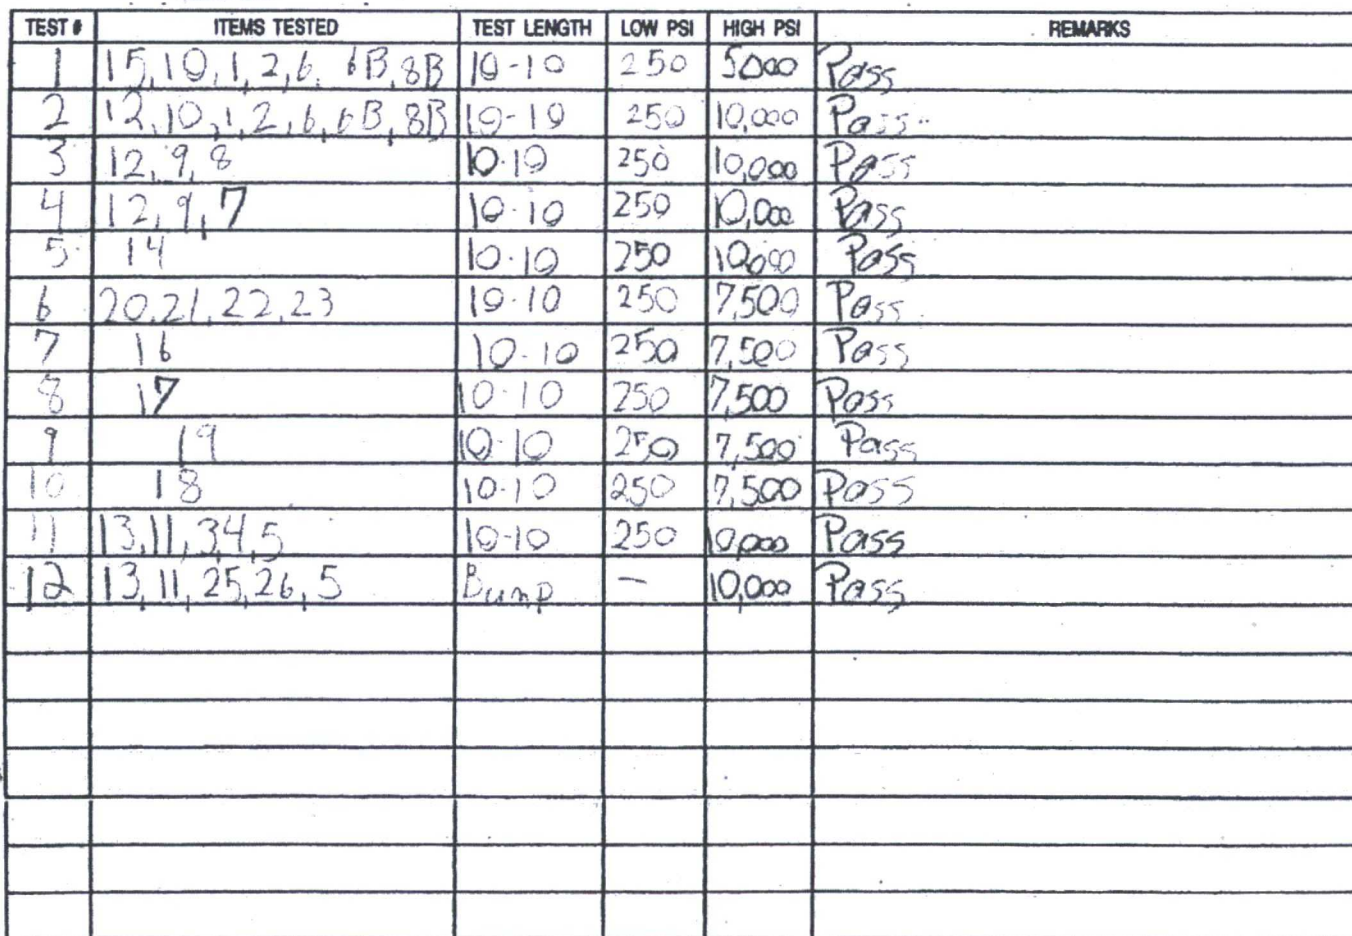 TEST # ITEMS TESTED TEST LENGTH LOW PSI HIGH PSI REMARKS
1 15,10,1,2,6,6B,8B 10-10 250 5000 Pass
2 12,10,1,2,6,6B,8B 10-10 250 10,000 Pass
3 12,9,8 10-10 250 10,000 Pass
4 12,9,7 10-10 250 10,000 Pass
5 14 10-10 250 10,000 Pass
6 20,21,22,23 10-10 250 7,500 Pass
7 16 10-10 250 7,500 Pass
8 17 10-10 250 7,500 Pass
9 19 10-10 250 7,500 Pass
10 18 10-10 250 7,500 Pass
11 13,11,3,4,5 10-10 250 10,000 Pass
12 13,11,25,26,5 Bump - 10,000 Pass